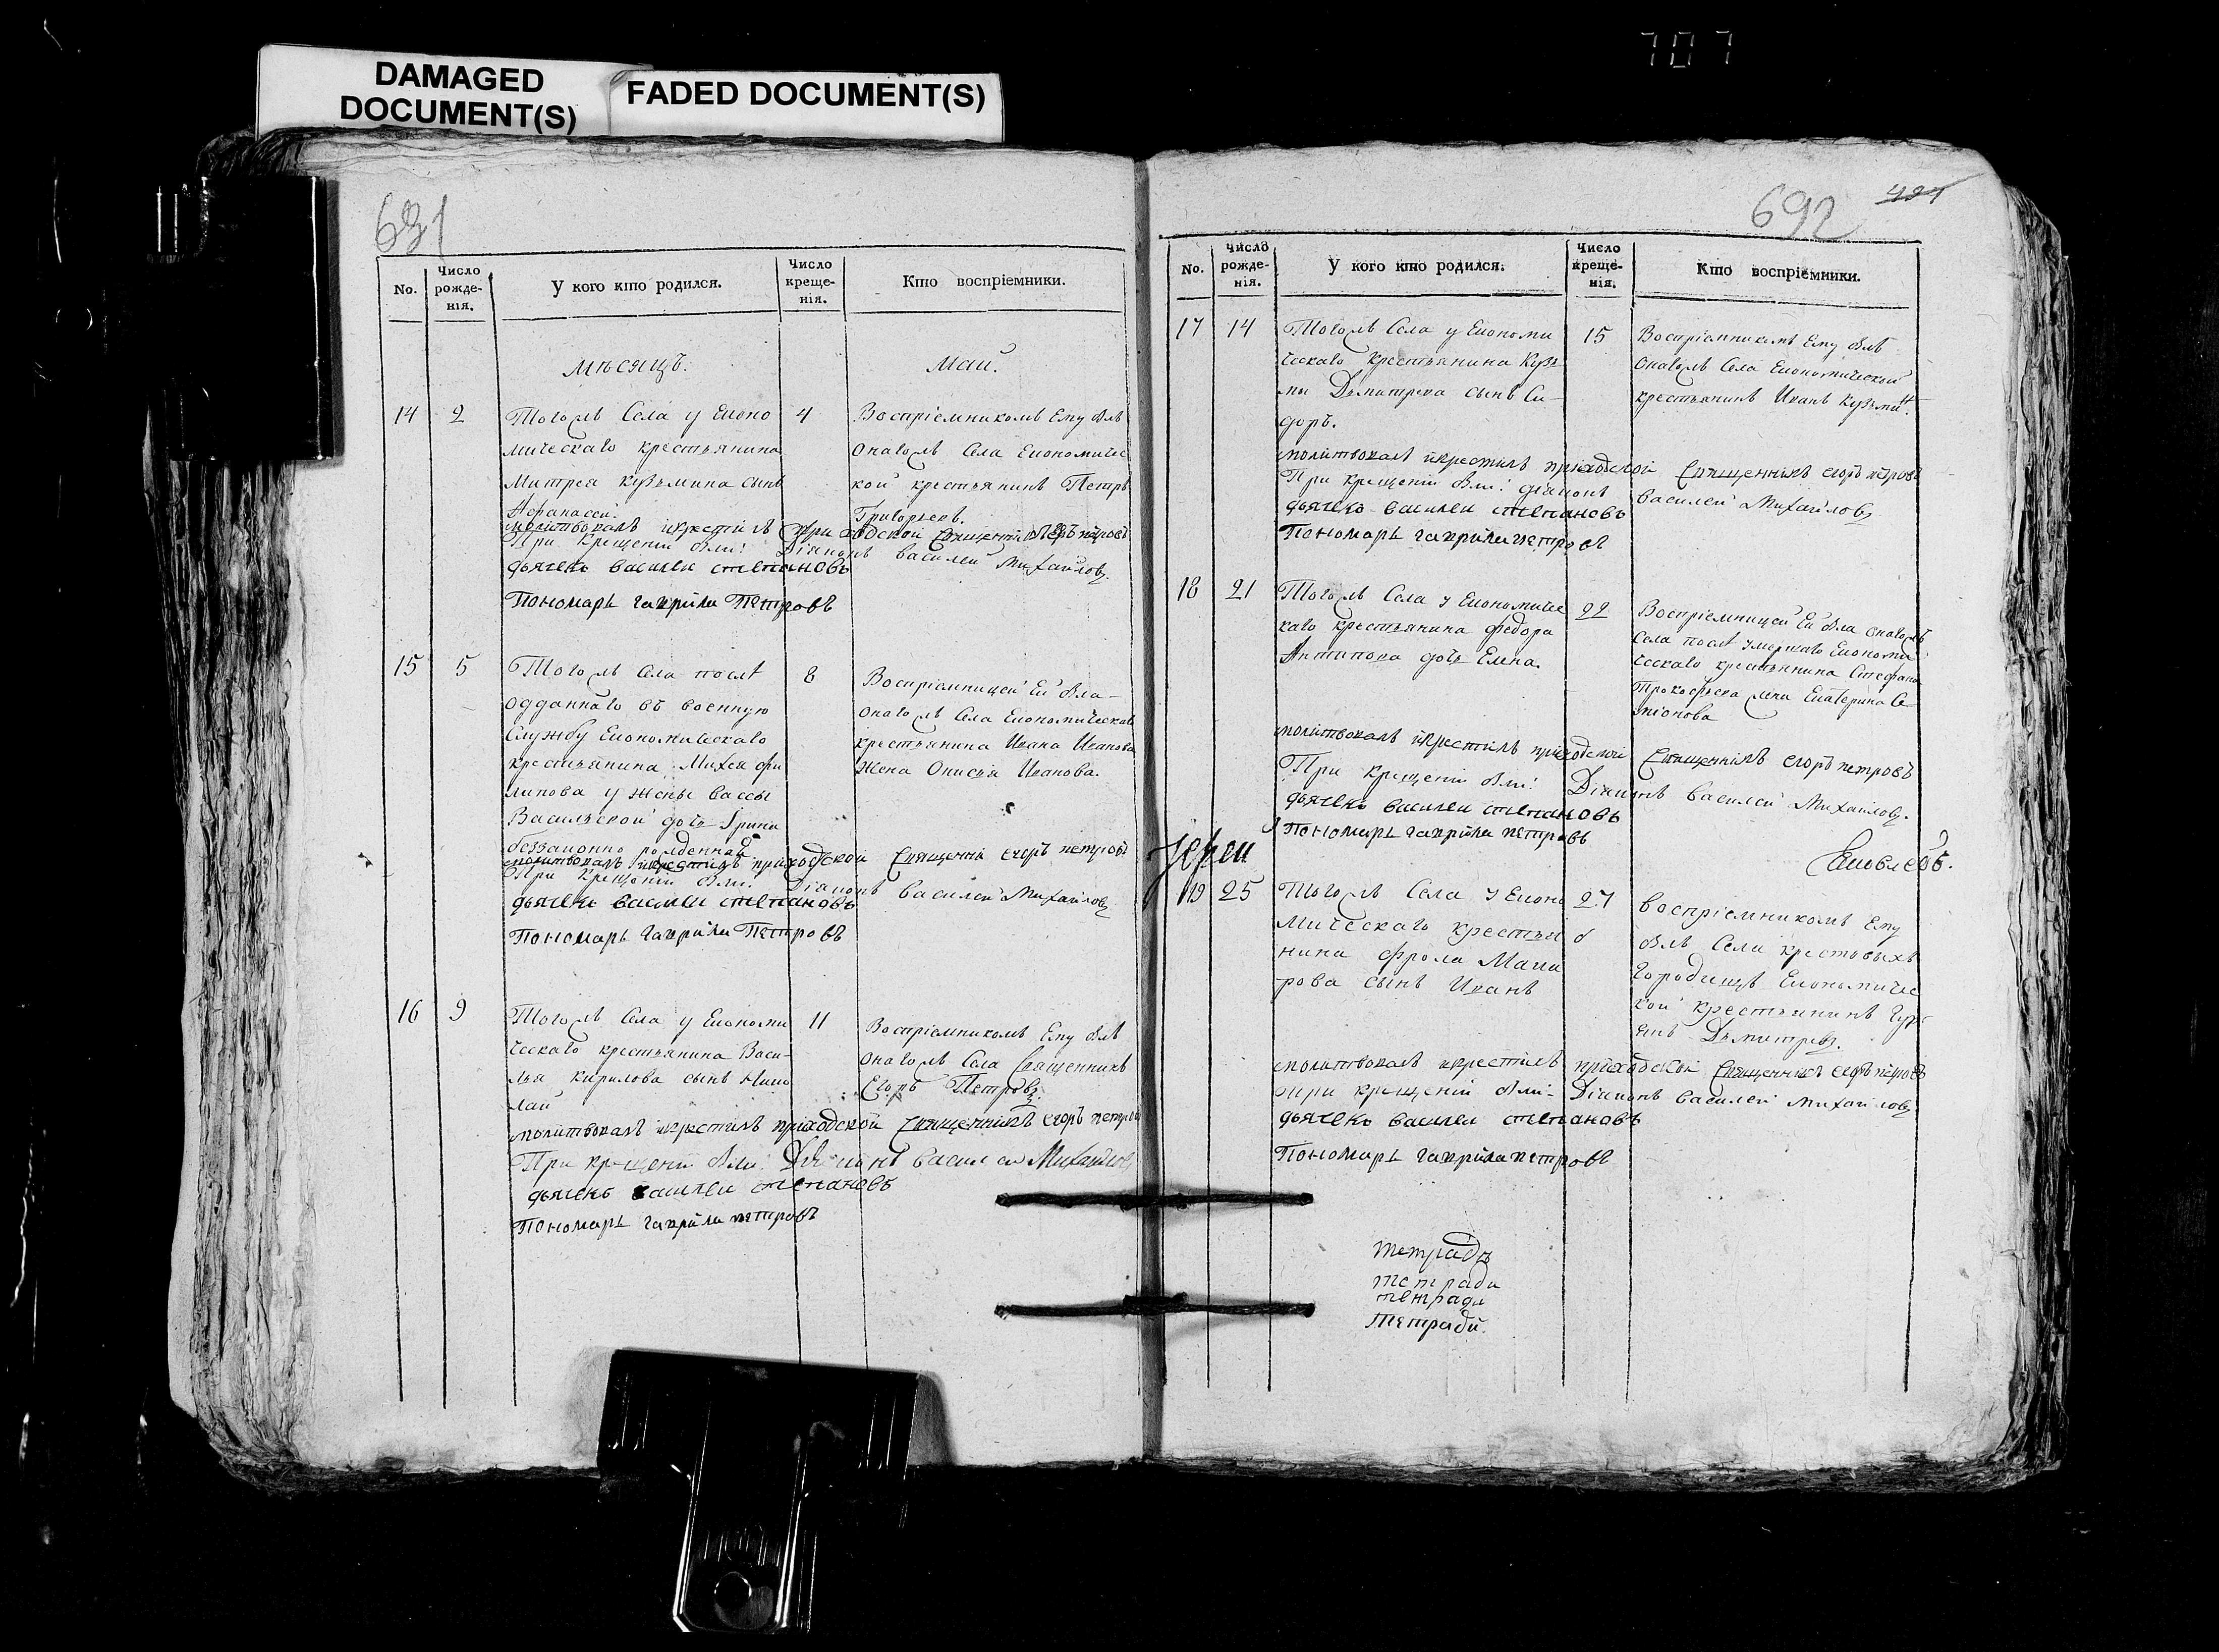 707
DAMAGED
DOCUMENT(S)
FADED DOCUMENT(S)
691
No.
Число рожде-нія.
У кого кто родился.
Число креще-нія.
Кто воспріемники.
мѣсяцъ.
Маіи.
14
2
Тогожъ Села у Еконо
мическаго крестьянина
Митрея кузьмина сынъ
Афанасеи.
4
Воспріемникомъ Ему былъ
онагожъ Села Економичес
кой крестьянинъ Петръ
Григорьевъ.
молитвовалъ икрестилъ приходской Священникъ егоръ петровъ
При крещеніи были: Діаконъ василеи Михайловъ
дьячекъ василеи степановъ
Пономарь гаврила Петровъ
15
5
Тогожъ Села послѣ
отданнаго въ военную
Службу Економическаго
крестьянина Михея фи
липова у жены вассы
Васильевой дочь Ірина
беззаконно рожденная
8
Воспріемницей Ей была
онагожъ Села Економическаго
крестьянина Ивана Иванова
жена Онисья Иванова.
молитвовалъ икрестилъ приходской Священни егоръ петровъ
При крещеніи были: Діаконъ василеи Михайловъ
дьячекъ василеи степановъ
Пономарь гаврила Петровъ
16
9
Тогожъ Села у Економи
ческаго крестьянина Васи-
лья кирилова сынъ Нико
лай
11
Воспріемникомъ Ему былъ
онагожъ Села Священникъ
Егоръ Петровъ.
молитвовалъ икрестилъ приходской Священникъ егоръ петровъ
При крещеніи были: Діаконъ василеи Михайловъ
дьячекъ василеи степановъ
Пономарь гаврила петровъ
692
No.
Число рожде-нія.
У кого кто родился.
Число креще-нія.
Кто воспріемники.
17
14
Тогожъ Села у Економи
ческаго крестьянина Кузь
мы Дмитрева сынъ Си-
доръ.
15
Воспріемникомъ Ему былъ
онагожъ Села Економической
крестьянинъ Иванъ Кузьмин.
молитвовалъ икрестилъ приходской Священникъ егоръ петровъ
При крещеніи были: діаконъ василей Михайловъ
дьячекъ василеи степановъ
Пономарь гаврила петровъ
18
21
Тогожъ Села у Економичес
каго крестьянина федора
Антипова дочь Елена.
22
Воспріемницей Ей была онагожъ
села послѣ умершаго Економи
ческаго крестьянина Стефана
Прокофьева жена Екатерина Се
міонова
молитвовалъ икрестилъ приходской Священникъ егоръ петровъ
При крещеніи были: Діаконъ василей Михайловъ.
дьячекъ василеи степановъ
Пономарь гаврила петровъ
Іереи
Яковлевъ.
19
25
Тогожъ Села у Еконо
мическаго крестья
нина фрола Мака
рова сынъ Иванъ
27
воспріемникомъ Ему
былъ Села крестовыхъ
городищъ Економичес
кой крестьянинъ Гур
Дмитрев.
молитвовалъ икрестилъ приходской Священникъ егоръ петровъ
при крещеніи были: Діаконъ василей михайловъ
дьячекъ василеи степановъ
Пономарь гаврила петровъ
тетрадь
тетради
тетради
тетради.